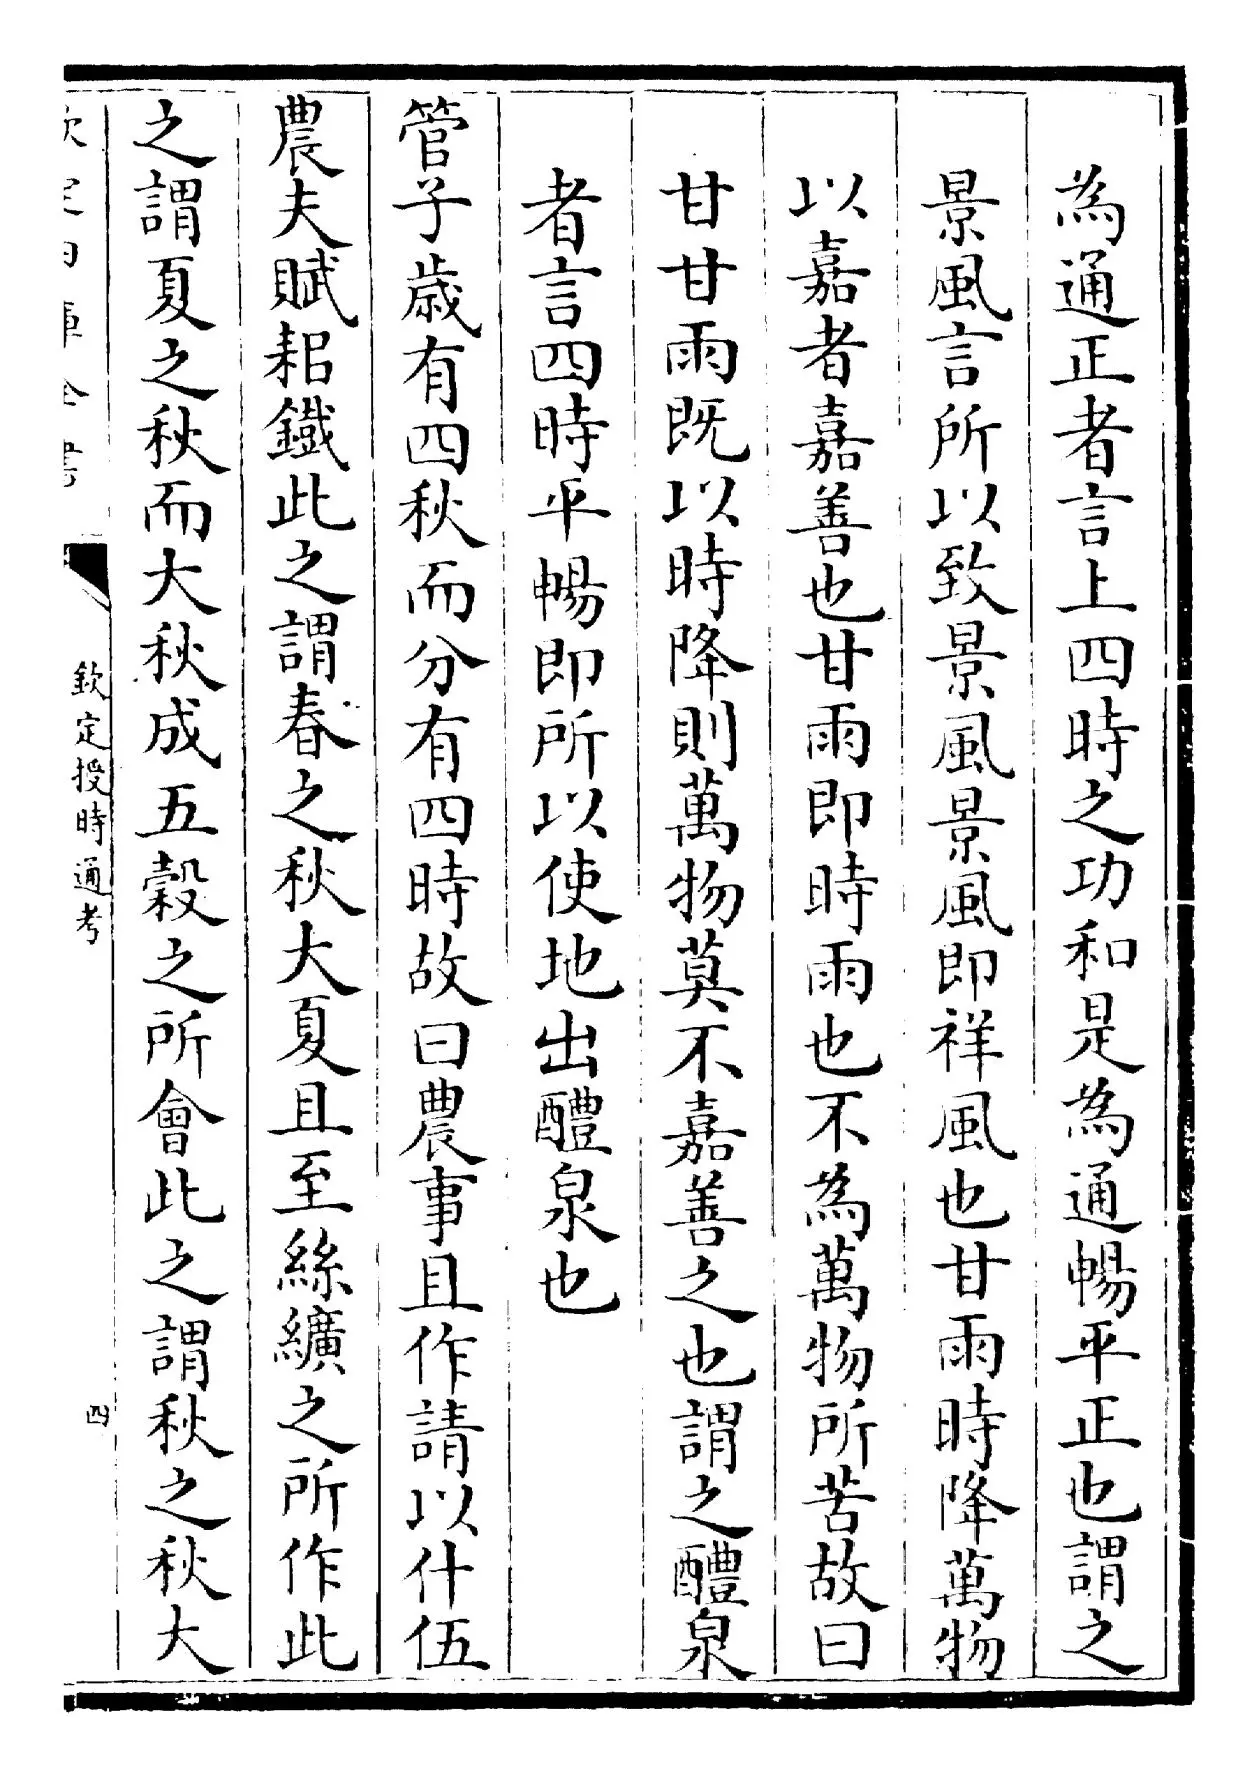 為通正者言上四時之功和是為通暢平正也謂之
景風言所以致景風景風即祥風也甘雨時降萬物
以嘉者嘉善也甘雨即時雨也不為萬物所苦故曰
甘甘雨既以時降則萬物莫不嘉善之也謂之醴泉
者言四時平暢即所以使地出醴泉也
管子歳有四秋而分有四時故曰農事且作請以什伍
農夫賦耜鐵此之謂春之秋大夏且至絲纊之所作此
之謂夏之秋而大秋成五穀之所會此之謂秋之秋大
欽定四庫全書
欽定授時通考
四